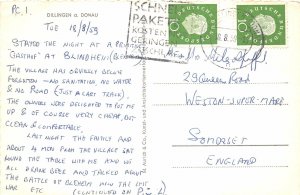 PC.1.
DILLINGEN a. DONAU
TUE 18/8/59
STAYED THE NIGHT AT A PRIMITIVE
"GASTHOF" AT BLINDHEIM
THE VILLAGE HAS OBVIOUSLY BEEN
FORGOTTEN - NO SANITATION, NO WATER
& NO ROAD (JUST A CART TRACK)
THE OWNERS WERE DELIGHTED TO PUT ME
UP & OF COURSE VERY CHEAP, BUT
CLEAN & COMFORTABLE.
LAST NIGHT THE FAMILY AND
ABOUT 4 MEN FROM THE VILLAGE SAT
ROUND THE TABLE WITH ME AND WE
ALL DRANK BEER AND TALKED ABOUT
THE BATTLE OF BLENHEIM AND THE LAST
WAR ETC (CONTINUED ON P.C. 2)
SCHNE
PAKET
KOSTEN
GERINGE
DEUTSCHE
BUNDESPOST
10
DEUTSCHE
BUNDESPOST
10
29
Road
WESTON-SUPER-MARE
SOMERSET
ENGLAND